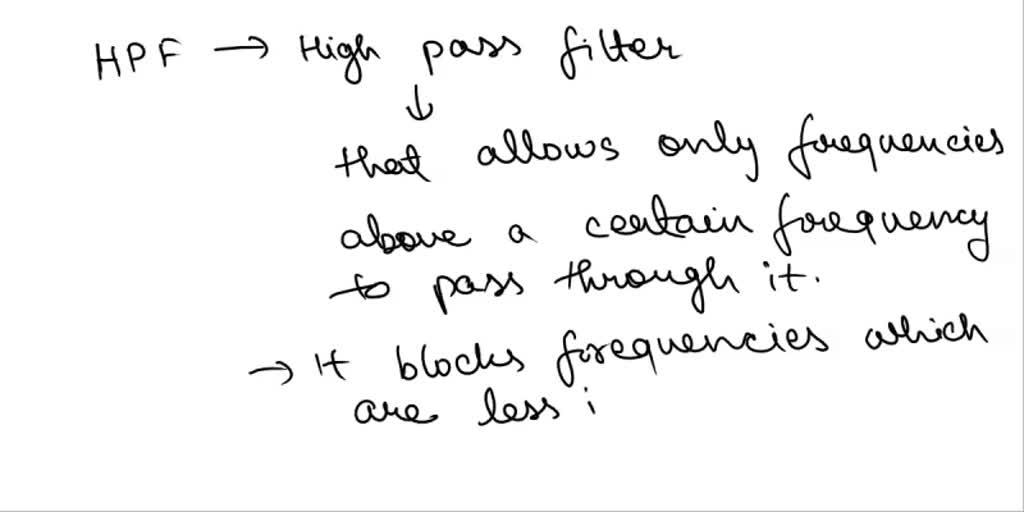 HPF → High pass filter
↓
that allows only frequencies
above a certain frequency
to pass through it.
→ It blocks frequencies which
are less i